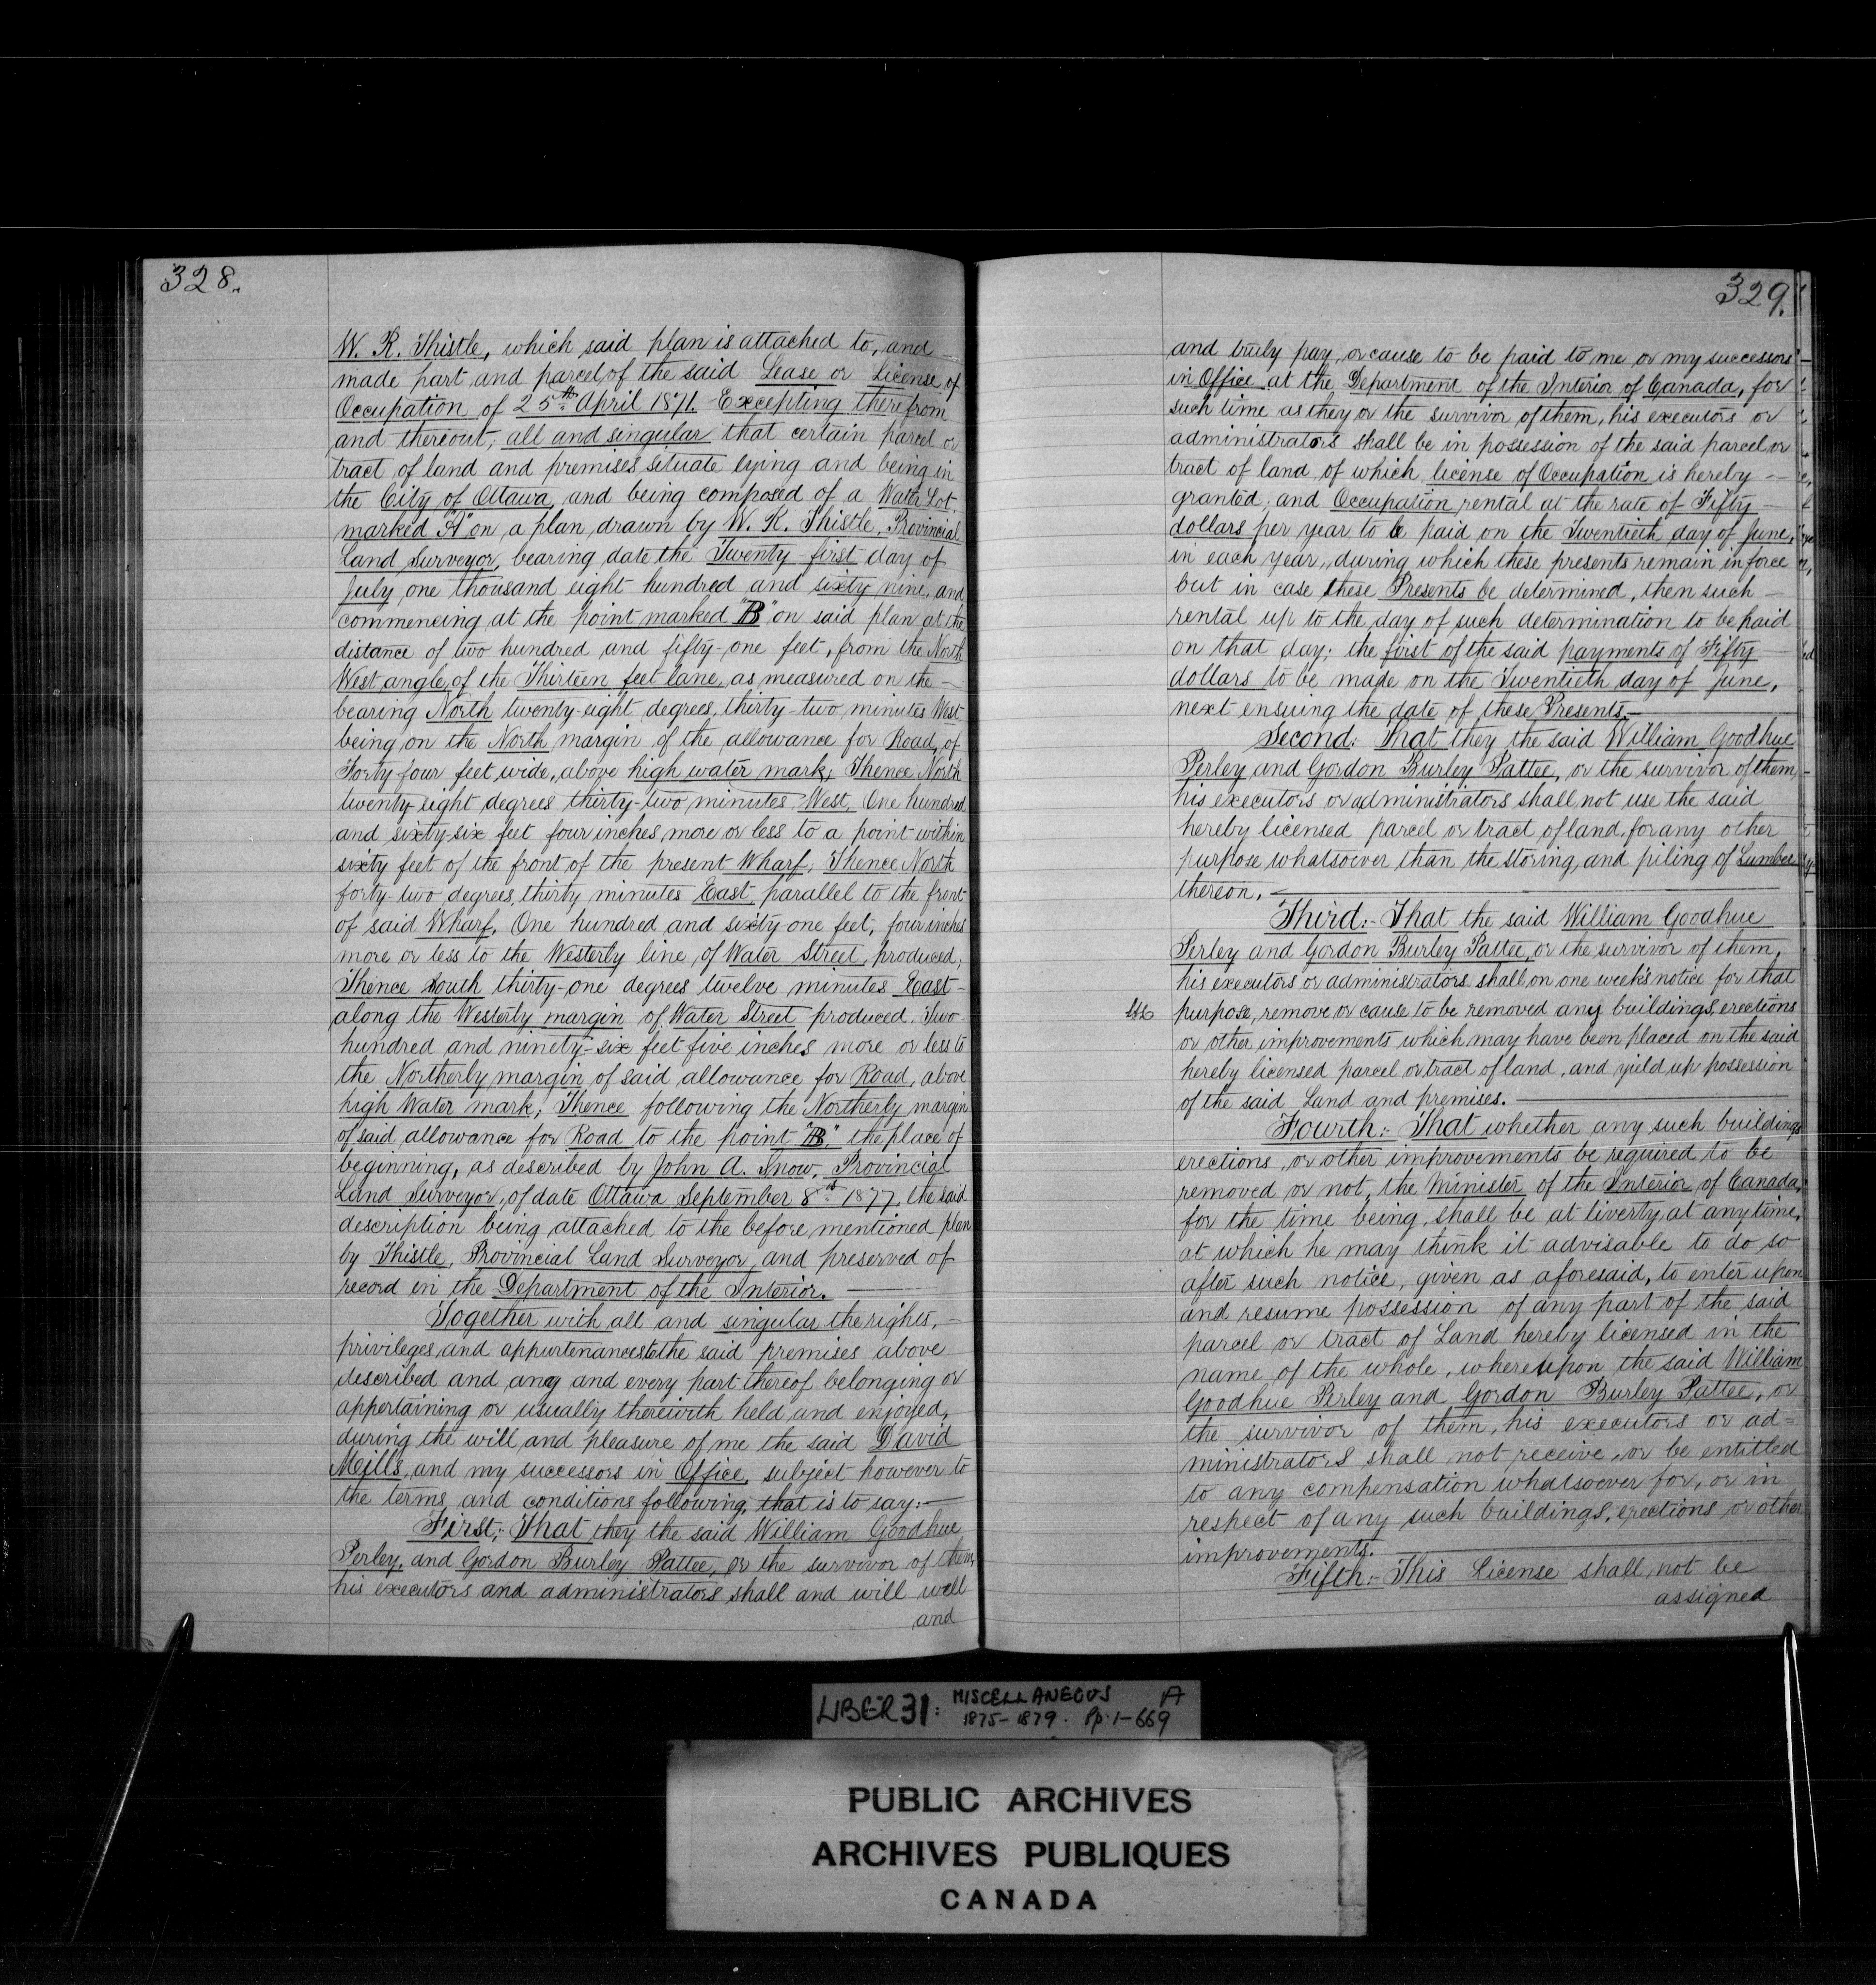 328.
W. R. Thistle, which said plan is attached to, and
made part and parcel of the said Lease or License of
Occupation of 25th April 1871. Excepting therefrom
and thereout, all and singular that certain parcel or
tract of land and premises situate lying and being in
the City of Ottawa, and being composed of a Water Lot.
marked "A" on a plan drawn by W. R. Thistle, Provincial
Land Surveyor, bearing date the Twenty-first day of
July one thousand eight hundred and sixty nine, and
commencing at the point marked "B" on said plan at the
distance of two hundred and fifty-one feet, from the North
West angle of the Thirteen feet lane, as measured on the —
bearing North twenty-eight degrees, thirty-two minutes West
being on the North margin of the allowance for Road, of
Forty four feet wide, above high water mark; Thence North
twenty-eight degrees thirty-two minutes West, One hundred
and sixty-six feet four inches, more or less to a point within
sixty feet of the front of the present Wharf; Thence North
forty-two degrees, thirty minutes East parallel to the front
of said Wharf, One hundred and sixty one feet, four inches
more or less to the Westerly line of Water Street, produced;
Thence South thirty-one degrees twelve minutes East-
along the Westerly margin of Water Street produced. Two
hundred and ninety-six feet five inches more or less to
the Northerly margin of said allowance for Road, above
high Water mark; Thence following the Northerly margin
of said allowance for Road to the point "B," the place of
beginning, as described by John A. Snow, Provincial
Land Surveyor, of date Ottawa September 8th 1877, the said
description being attached to the before mentioned plan
by Thistle, Provincial Land Surveyor, and preserved of
record in the Department of the Interior. —
Together with all and singular the rights, —
privileges and appurtenances to the said premises above
described and any and every part thereof belonging or
appertaining or usually therewith held and enjoyed,
during the will and pleasure of me the said David
Mills, and my successors in Office, subject however to
the terms and conditions following, that is to say:—
First:- That they the said William Goodhue
Perley, and Gordon Burley Pattee, or the survivor of them,
his executors and administrators shall and will well
and
329.
and truly pay, or cause to be paid to me or my successors
in Office at the Department of the Interior of Canada, for
such time as they or the survivor of them, his executors or
administrators shall be in possession of the said parcel or
tract of land of which license of Occupation is hereby --
granted; and Occupation rental at the rate of Fifty —
dollars per year to be paid on the Twentieth day of June,
in each year, during which these presents remain in force
but in case these Presents be determined, then such —
rental up to the day of such determination to be paid
on that day; the first of the said payments of Fifty —
dollars to be made on the Twentieth day of June,
next ensuing the date of these Presents. —
Second:- That they the said William Goodhue
Perley and Gordon Burley Pattee, or the survivor of them,
his executors or administrators shall not use the said
hereby licensed parcel or tract of land, for any other
purpose whatsoever than the storing, and piling of Lumber
thereon. —
Third:- That the said William Goodhue
Perley and Gordon Burley Pattee, or the survivor of them,
his executors or administrators shall on one week's notice for that
purpose, remove or cause to be removed any buildings, erections
or other improvements which may have been placed on the said
hereby licensed parcel or tract of land, and yield up possession
of the said Land and premises. —
Fourth:- That whether any such buildings
erections, or other improvements be required to be
removed or not, the Minister of the Interior of Canada,
for the time being, shall be at liverty, at any time,
at which he may think it advisable to do so
after such notice, given as aforesaid, to enter upon
and resume possession of any part of the said
parcel or tract of Land hereby licensed in the
name of the whole, whereupon the said William
Goodhue Perley and Gordon Burley Pattee, or
the survivor of them, his executors or ad=
ministrators shall not receive, or be entitled
to any compensation whatsoever for, or in
respect of any such buildings, erections or other
improvements. —
Fifth:- This License shall not be
assigned
LIBER 31: MISCELLANEOUS A
1875-1879. Pp. 1-669
PUBLIC ARCHIVES
ARCHIVES PUBLIQUES
CANADA